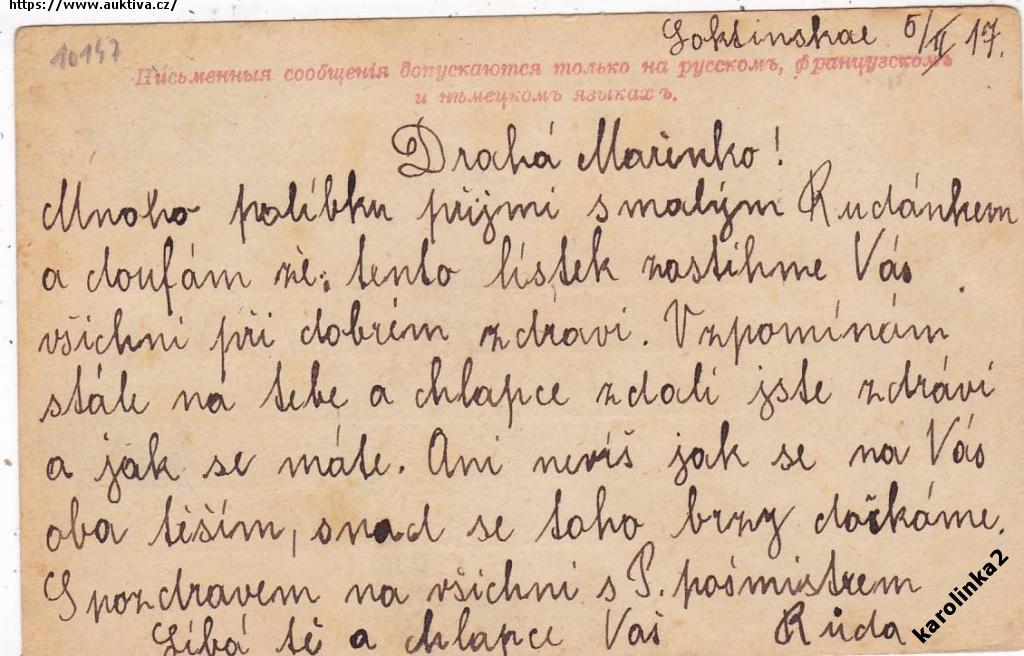 https://www.auktiva.cz/
Loktinskae 5/II 17.
10147
Письменныя сообщенія допускаются только на русскомъ, французскомъ
и нѣмецкомъ языкахъ.
Drahá Mařenko!
Mnoho políbku přijmi s malým Rudánkem
a doufám že tento lístek zastihme Vás
všichni při dobrém zdraví. Vzpomínám
stále na tebe a chlapce zdali jste zdráví
a jak se máte. Ani nevíš jak se na Vás
oba těším, snad se toho brzy dočkáme.
S pozdravem na všichni s P. pošmistrem
Líbá tě a chlapce Váš Růda
karolinka2